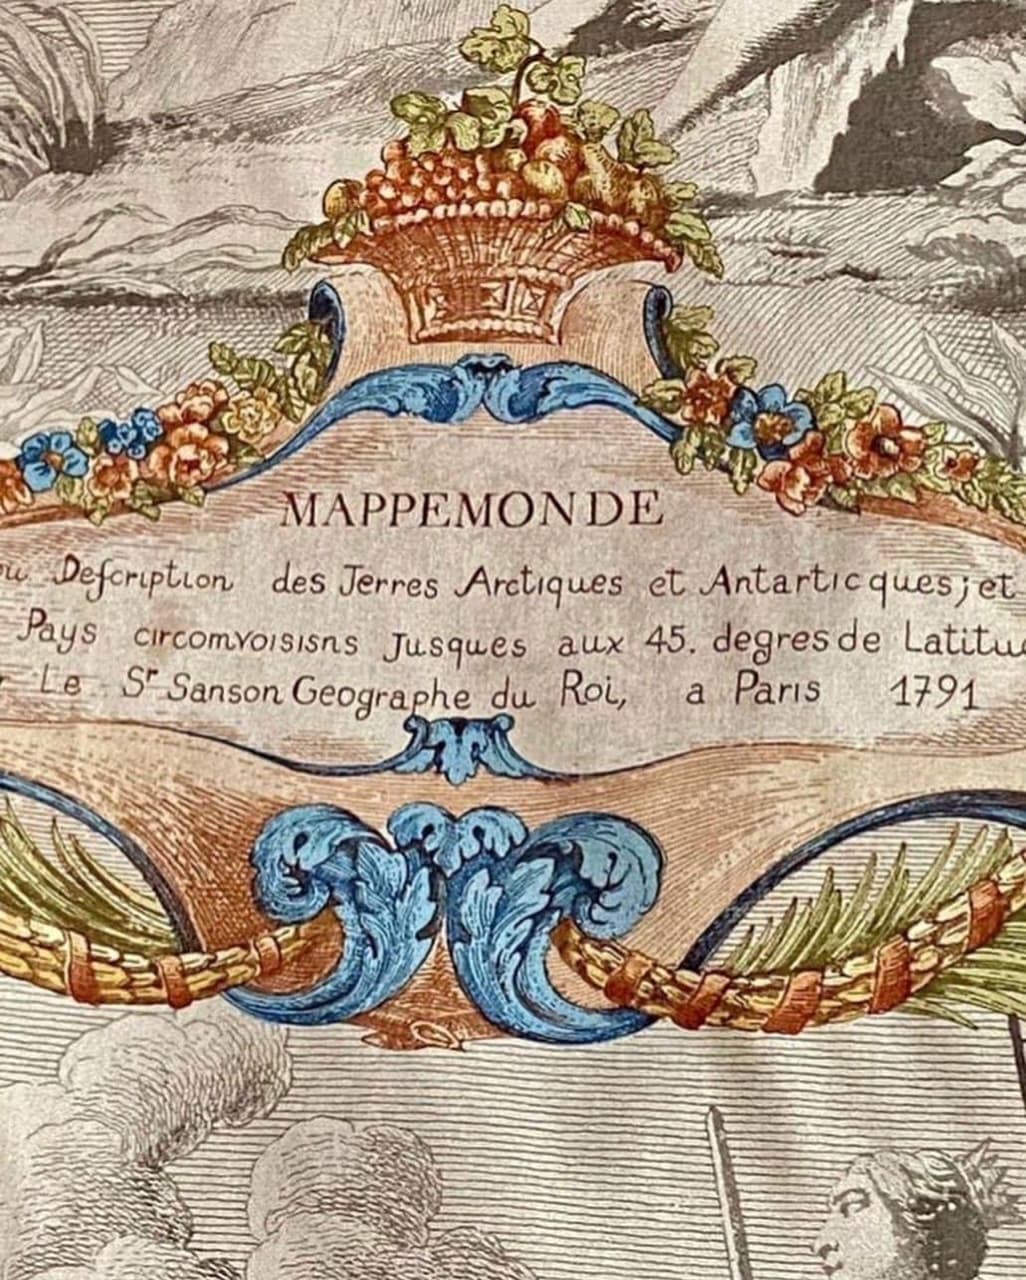 MAPPEMONDE
ou Defcription des Terres Arctiques et Antarticques; et
Pays circomvoisisns Jusques aux 45. degres de Latitu
Le Sr Sanson Geographe du Roi, a Paris 1791